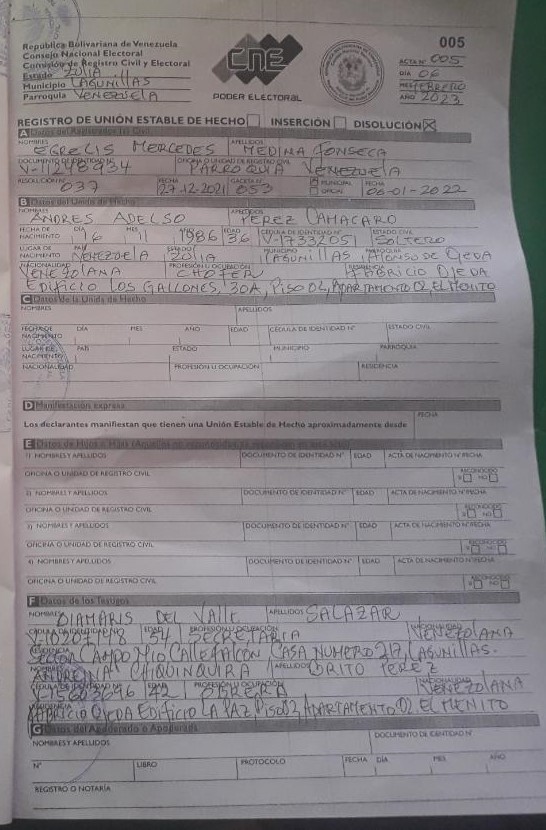 República Bolivariana de Venezuela
Consejo Nacional Electoral
Comisión de Registro Civil y Electoral
Estado ZULIA
Municipio LAGUNILLAS
Parroquia VENEZUELA
CNE
PODER ELECTORAL
005
ACTA Nº 005
DÍA 06
MES FEBRERO
AÑO 2023
REGISTRO DE UNIÓN ESTABLE DE HECHO INSERCIÓN DISOLUCIÓN X
A Datos del Registrador (a) Civil
NOMBRES EGRELIS MERCEDES APELLIDOS MEDINA FONSECA
DOCUMENTO DE IDENTIDAD Nº V-11248934 OFICINA O UNIDAD DE REGISTRO CIVIL PARROQUIA VENEZUELA
RESOLUCIÓN Nº 037 FECHA 27-12-2021 GACETA Nº 053 MUNICIPAL OFICIAL FECHA 06-01-2022
B Datos del Unido de Hecho
NOMBRES ANDRES ADELSO APELLIDOS PEREZ CAMACARO
FECHA DE NACIMIENTO DÍA 16 MES 11 AÑO 1986 EDAD 36 CÉDULA DE IDENTIDAD Nº V-17332051 ESTADO CIVIL SOLTERO
LUGAR DE NACIMIENTO PAÍS VENEZUELA ESTADO ZULIA MUNICIPIO LAGUNILLAS PARROQUIA ALONSO DE OJEDA
NACIONALIDAD VENEZOLANA PROFESIÓN U OCUPACIÓN CHOFER RESIDENCIA FABRICIO OJEDA
EDIFICIO LOS GALLONES, 30A, PISO 02, APARTAMENTO 02 EL MENITO
C Datos de la Unida de Hecho
NOMBRES APELLIDOS
FECHA DE NACIMIENTO DÍA MES AÑO EDAD CÉDULA DE IDENTIDAD Nº ESTADO CIVIL
LUGAR DE NACIMIENTO PAÍS ESTADO MUNICIPIO PARROQUIA
NACIONALIDAD PROFESIÓN U OCUPACIÓN RESIDENCIA
D Manifestación expresa
Los declarantes manifiestan que tienen una Unión Estable de Hecho aproximadamente desde FECHA
E Datos de Hijos o Hijas
1) NOMBRES Y APELLIDOS DOCUMENTO DE IDENTIDAD Nº EDAD ACTA DE NACIMIENTO Nº/FECHA
OFICINA O UNIDAD DE REGISTRO CIVIL RECONOCIDO SI NO
2) NOMBRES Y APELLIDOS DOCUMENTO DE IDENTIDAD Nº EDAD ACTA DE NACIMIENTO Nº/FECHA
OFICINA O UNIDAD DE REGISTRO CIVIL RECONOCIDO SI NO
3) NOMBRES Y APELLIDOS DOCUMENTO DE IDENTIDAD Nº EDAD ACTA DE NACIMIENTO Nº/FECHA
OFICINA O UNIDAD DE REGISTRO CIVIL RECONOCIDO SI NO
4) NOMBRES Y APELLIDOS DOCUMENTO DE IDENTIDAD Nº EDAD ACTA DE NACIMIENTO Nº/FECHA
OFICINA O UNIDAD DE REGISTRO CIVIL RECONOCIDO SI NO
F Datos de los Testigos
NOMBRES DIAMARIS DEL VALLE APELLIDOS SALAZAR
CÉDULA DE IDENTIDAD Nº EDAD PROFESIÓN U OCUPACIÓN SECRETARIA NACIONALIDAD VENEZOLANA
RESIDENCIA SECTOR CAMPO MIO CALLEJON CON CASA NUMERO 217, LAGUNILLAS.
NOMBRES ANDREINA CHIQUINQUIRA APELLIDOS BRITO PEREZ
CÉDULA DE IDENTIDAD Nº EDAD 42 PROFESIÓN U OCUPACIÓN OBRERA NACIONALIDAD VENEZOLANA
RESIDENCIA FABRICIO OJEDA EDIFICIO LA PAZ, PISO 02, APARTAMENTO 02 EL MENITO
G Datos del Apoderado o Apoderada
NOMBRES Y APELLIDOS DOCUMENTO DE IDENTIDAD Nº
Nº LIBRO PROTOCOLO FECHA DÍA MES AÑO
REGISTRO O NOTARÍA